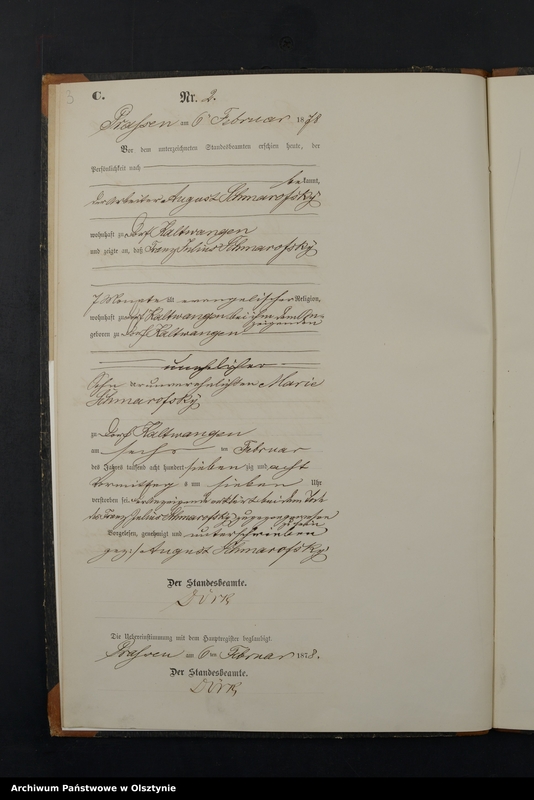 3
C.
Nr. 2.
Prassen am 6ten Februar 1878
Vor dem unterzeichneten Standesbeamten erschien heute, der
Persönlichkeit nach
bekannt,
der Arbeiter August Schmarofsky
wohnhaft zu Dorf Kaltwangen
und zeigte an, daß Franz Julius Schmarofsky
7 Monate alt evangelischer Religion,
wohnhaft zu Dorf Kaltwangen bei ihm dem An-
zeigenden
geboren zu Dorf Kaltwangen
unehelicher
Sohn der unverehelichten Marie
Schmarofsky
zu Dorf Kaltwangen
am sechs ten Februar
des Jahres tausend acht hundert sieben zig und acht
Vormittag s um sieben Uhr
verstorben sei, der Anzeigende erklärt bei dem Tode
des Franz Julius Schmarofsky zugegen gewesen
zu sein
Vorgelesen, genehmigt und unterschrieben
gez: August Schmarofsky
Der Standesbeamte.
Die Uebereinstimmung mit dem Hauptregister beglaubigt.
Prassen am 6 ten Februar 1878.
Der Standesbeamte.
Archiwum Państwowe w Olsztynie